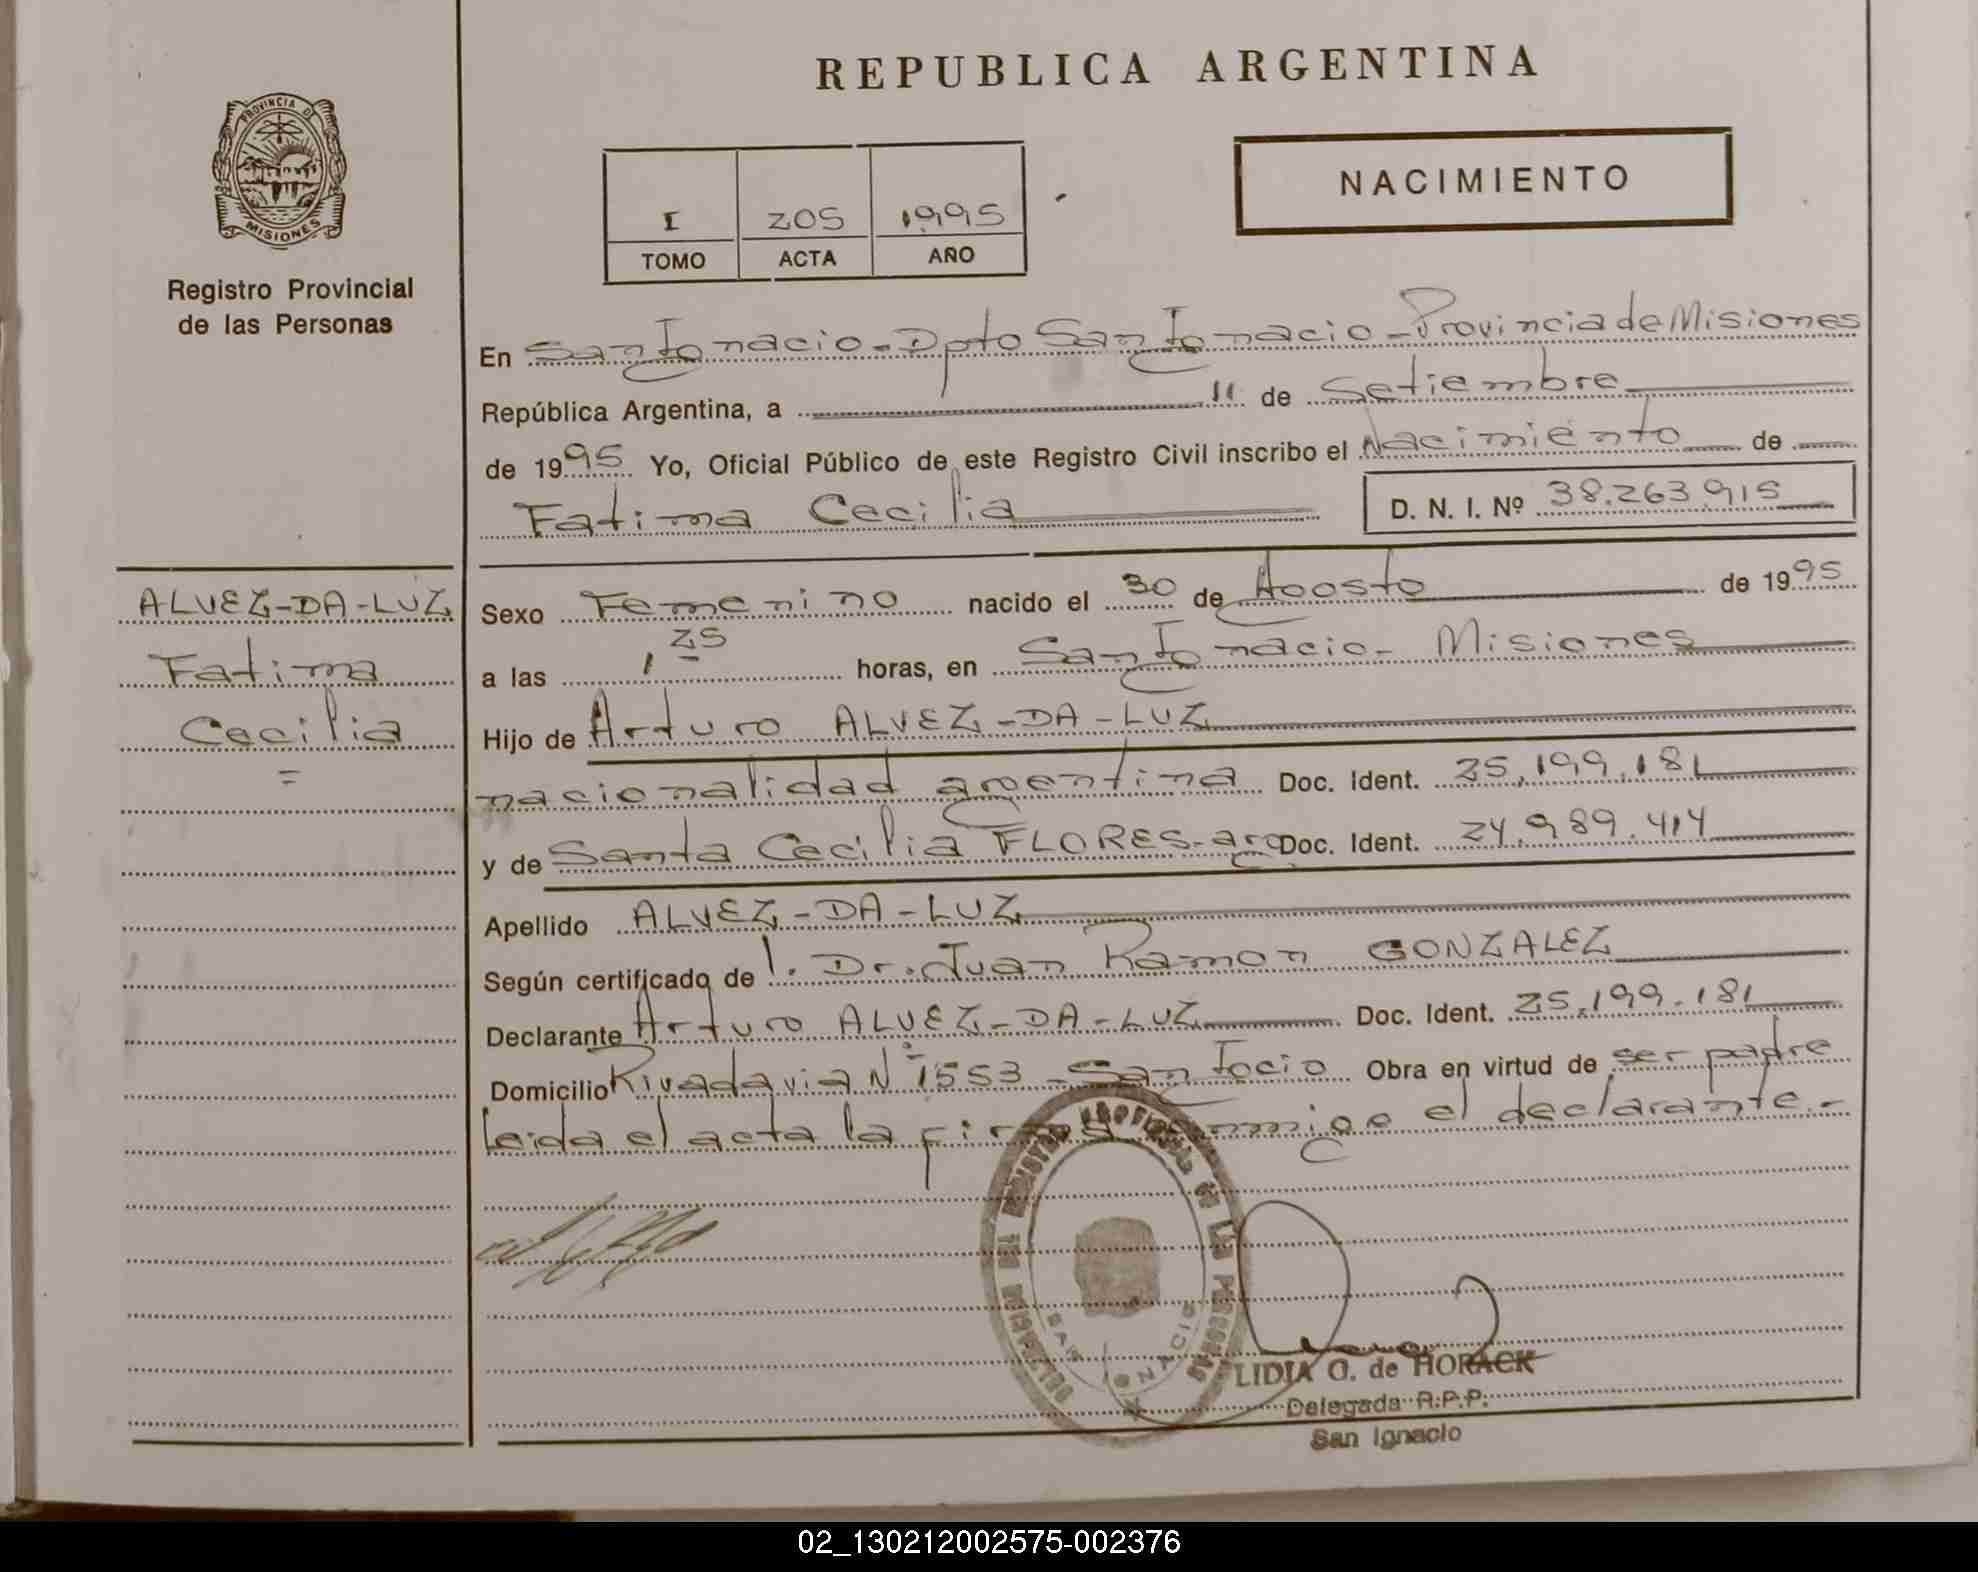 REPUBLICA ARGENTINA
NACIMIENTO
PROVINCIA DE
MISIONES
Registro Provincial
de las Personas
I 205 1995
TOMO ACTA AÑO
En San Ignacio - Dpto San Ignacio - Provincia de Misiones
República Argentina, a 11 de Setiembre
de 1995 Yo, Oficial Público de este Registro Civil inscribo el Nacimiento de
Fatima Cecilia D. N. I. Nº 38.263.915
ALVEZ-DA-LUZ
Fatima
Cecilia
=
Sexo Femenino nacido el 30 de Agosto de 1995
a las 1 25 horas, en San Ignacio - Misiones
Hijo de Arturo ALVEZ-DA-LUZ
nacionalidad argentina Doc. Ident. 25.199.181
y de Santa Cecilia FLORES-arg Doc. Ident. 24.989.414
Apellido ALVEZ-DA-LUZ
Según certificado de l. Dr. Juan Ramon GONZALEZ
Declarante Arturo ALVEZ-DA-LUZ Doc. Ident. 25.199.181
Domicilio Rivadavia Nº 1553 - San Igcio Obra en virtud de ser padre
leida el acta la firma conmigo el declarante.-
REGISTRO PROVINCIAL DE LAS PERSONAS
SAN IGNACIO
LIDIA G. de HORACK
Delegada R.P.P.
San Ignacio
02_130212002575-002376